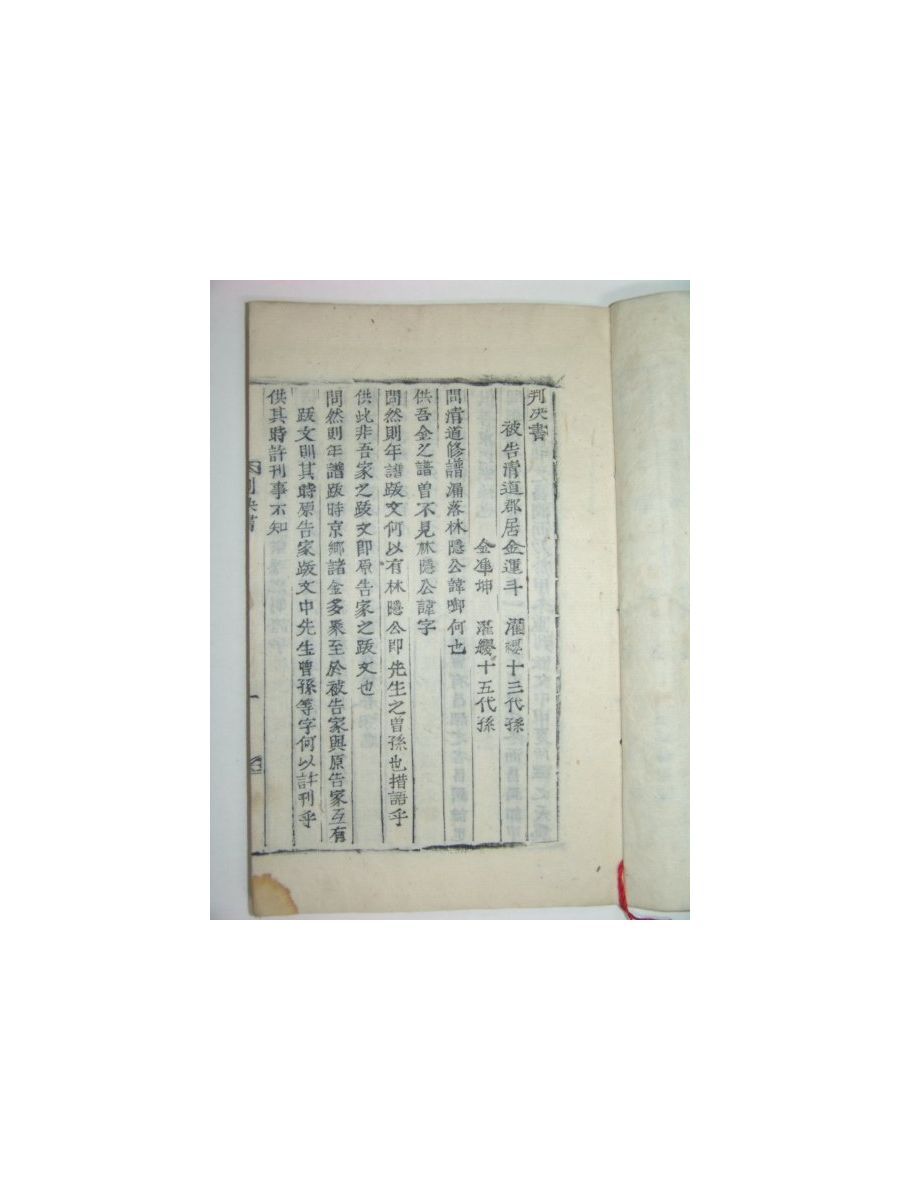 判决書
被告清道郡居金運斗 濯纓十三代孫
金準坤 濯纓十五代孫
問清道修譜漏落林隱公諱啣何也
供吾金之譜曽不見林隱公諱字
問然則年譜跋文何以有林隱公即先生之曽孫也措語乎
供此非吾家之跋文即原告家之跋文也
問然則年譜跋時京鄉諸金多乘至於被告家與原告家互有
跋文則其時原告家跋文中先生曽孫等字何以許刊乎
供其時許刊事不知
判决書
一